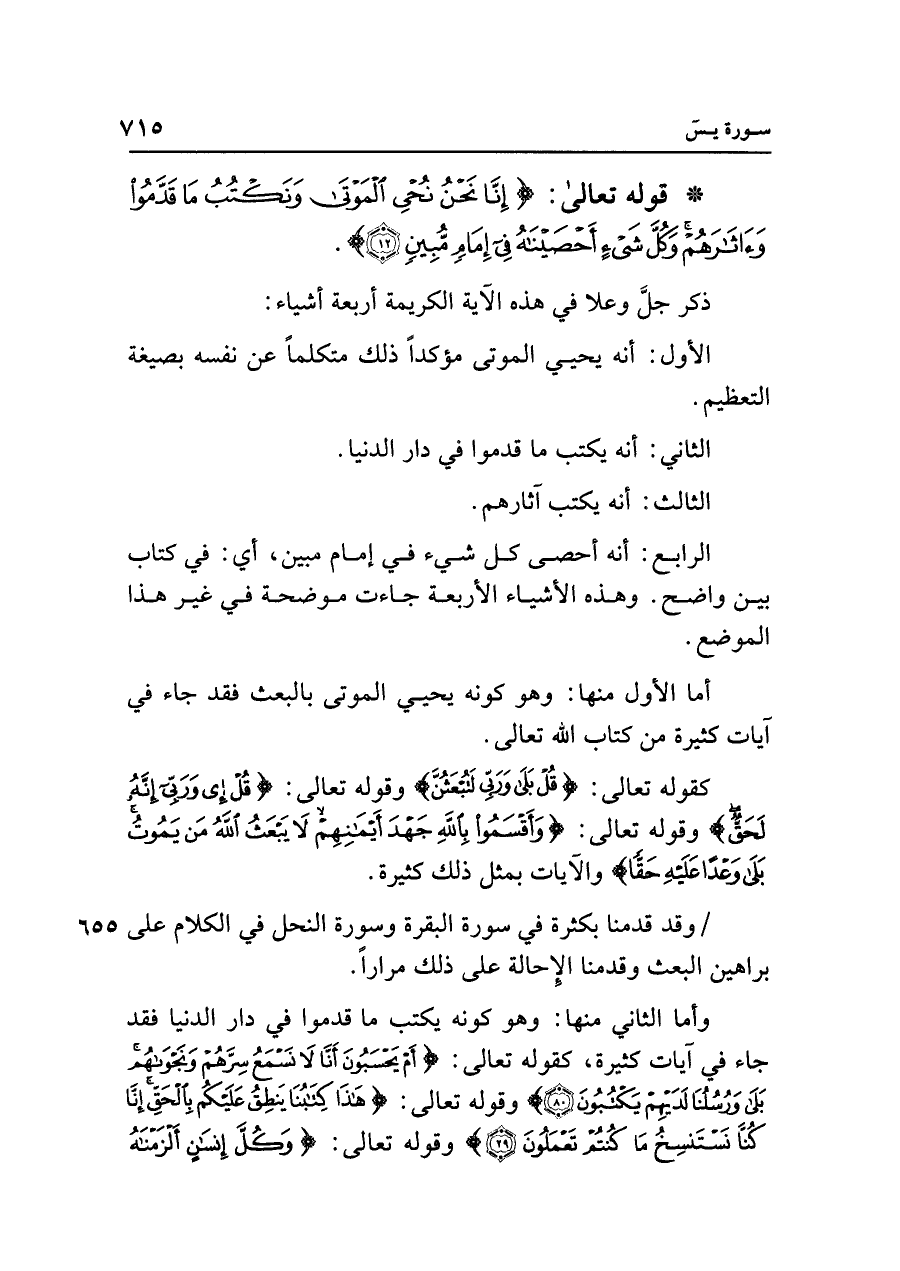 سورة يسَ ٧١٥
* قوله تعالىٰ: ﴿ إِنَّا نَحْنُ نُحْيِ ٱلْمَوْتَىٰ وَنَكْتُبُ مَا قَدَّمُوا۟
وَءَاثَٰرَهُمْۚ وَكُلَّ شَىْءٍ أَحْصَيْنَٰهُ فِىٓ إِمَامٍ مُّبِينٍ ۝١٢﴾.
ذكر جلَّ وعلا في هذه الآية الكريمة أربعة أشياء:
الأول: أنه يحيي الموتى مؤكداً ذلك متكلماً عن نفسه بصيغة
التعظيم.
الثاني: أنه يكتب ما قدموا في دار الدنيا.
الثالث: أنه يكتب آثارهم.
الرابع: أنه أحصى كل شيء في إمام مبين، أي: في كتاب
بين واضح. وهذه الأشياء الأربعة جاءت موضحة في غير هذا
الموضع.
أما الأول منها: وهو كونه يحيي الموتى بالبعث فقد جاء في
آيات كثيرة من كتاب الله تعالى.
كقوله تعالى: ﴿ قُلْ بَلَىٰ وَرَبِّى لَتُبْعَثُنَّ﴾ وقوله تعالى: ﴿ قُلْ إِى وَرَبِّىٓ إِنَّهُۥ
لَحَقٌّۖ﴾ وقوله تعالى: ﴿وَأَقْسَمُوا۟ بِٱللَّهِ جَهْدَ أَيْمَٰنِهِمْۙ لَا يَبْعَثُ ٱللَّهُ مَن يَمُوتُۚ
بَلَىٰ وَعْدًا عَلَيْهِ حَقًّا﴾ والآيات بمثل ذلك كثيرة.
/ وقد قدمنا بكثرة في سورة البقرة وسورة النحل في الكلام على ٦٥٥
براهين البعث وقدمنا الإِحالة على ذلك مراراً.
وأما الثاني منها: وهو كونه يكتب ما قدموا في دار الدنيا فقد
جاء في آيات كثيرة، كقوله تعالى: ﴿ أَمْ يَحْسَبُونَ أَنَّا لَا نَسْمَعُ سِرَّهُمْ وَنَجْوَىٰهُمۚ
بَلَىٰ وَرُسُلُنَا لَدَيْهِمْ يَكْتُبُونَ ۝٨٠﴾ وقوله تعالى: ﴿ هَٰذَا كِتَٰبُنَا يَنطِقُ عَلَيْكُم بِٱلْحَقِّۚ إِنَّا
كُنَّا نَسْتَنسِخُ مَا كُنتُمْ تَعْمَلُونَ ۝٢٩﴾ وقوله تعالى: ﴿ وَكُلَّ إِنسَٰنٍ أَلْزَمْنَٰهُ